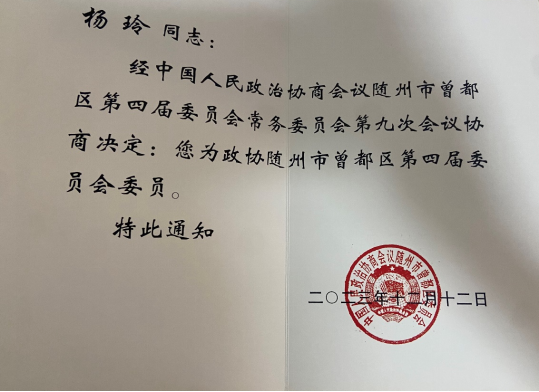 杨玲同志：
经中国人民政治协商会议随州市曾都
区第四届委员会常务委员会第九次会议协
商决定：您为政协随州市曾都区第四届委
员会委员。
特此通知
中国人民政治协商会议随州市曾都区委员会
二〇二三年十二月十二日